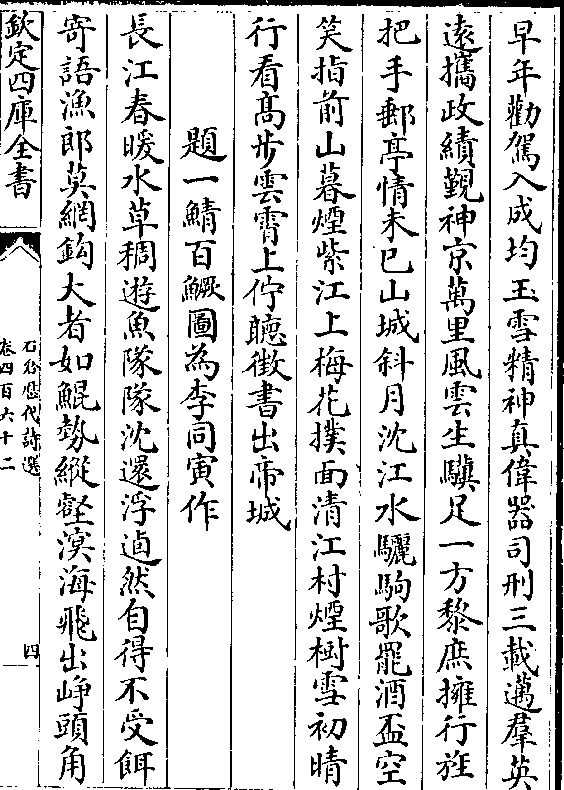 早年勸駕入成均玉雪精神真偉器司刑三載邁羣英
遠攜政績覲神京萬里風雲生驥足一方黎庶擁行旌
把手郵亭情未已山城斜月沈江水驪駒歌罷酒盃空
笑指前山暮煙紫江上梅花撲面清江村煙樹雪初晴
行看髙步雲霄上佇聽徵書出帝城
題一鯖百鱖圖為李同寅作
長江春暖水草稠遊魚隊隊沈還浮逌然自得不受餌
寄語漁郎莫網鈎大者如鯤勢縱壑溟海飛出崢頭角
欽定四庫全書
石倉歴代詩選
卷四百六十二
四